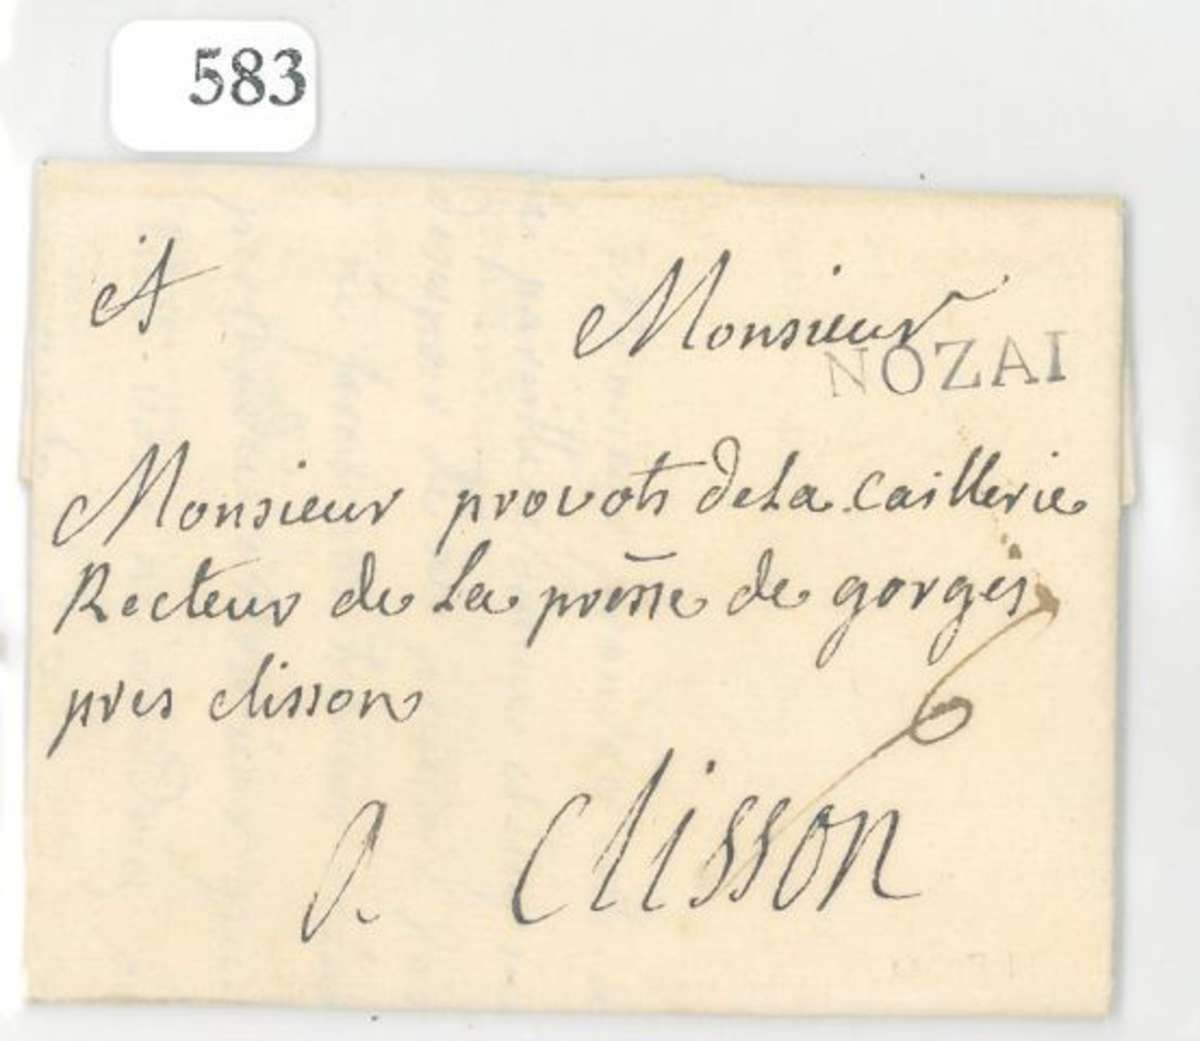 583
A Monsieur
NOZAI
Monsieur provots de La Caillerie
Recteur de La prōsse de gorges
pres clisson
6
a clisson